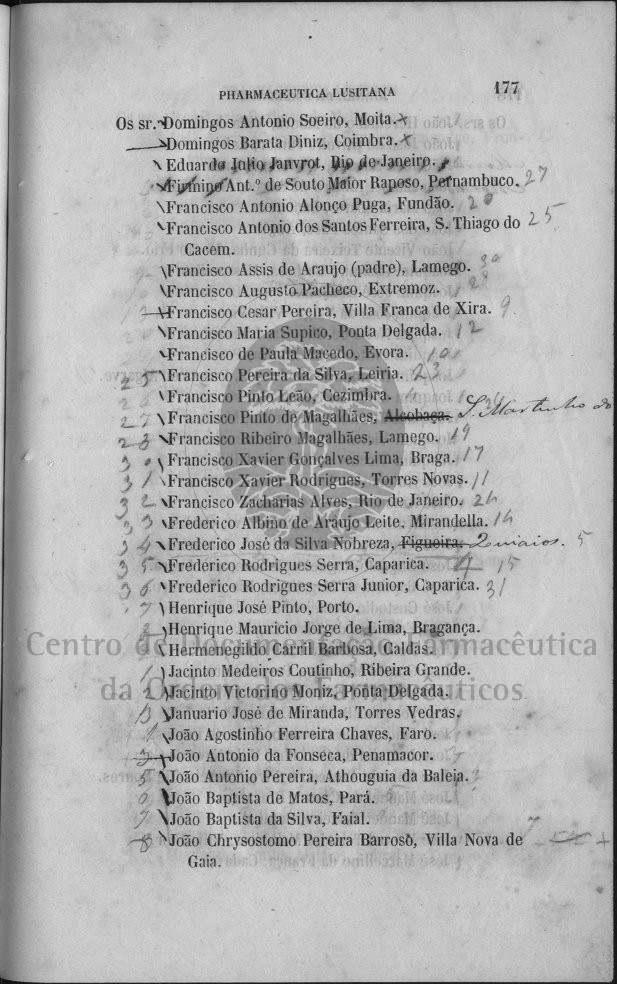 PHARMACEUTICA LUSITANA 177
Os sr. Domingos Antonio Soeiro, Moita. x
Domingos Barata Diniz, Coimbra. x
Eduardo Julio Janvrot, Rio de Janeiro.
Firmino Ant.º de Souto Maior Raposo, Pernambuco. 27
Francisco Antonio Alonço Puga, Fundão. 20
Francisco Antonio dos Santos Ferreira, S. Thiago do 25
Cacem.
Francisco Assis de Araujo (padre), Lamego. 30
Francisco Augusto Pacheco, Extremoz.
Francisco Cesar Pereira, Villa Franca de Xira. 9
Francisco Maria Supico, Ponta Delgada. 12
Francisco de Paula Macedo, Evora. 10
25 Francisco Pereira da Silva, Leiria. 23
Francisco Pinto Leão, Cezimbra.
27 Francisco Pinto de Magalhães, Alcobaça. S. Martinho do
28 Francisco Ribeiro Magalhães, Lamego. 19
30 Francisco Xavier Gonçalves Lima, Braga. 17
31 Francisco Xavier Rodrigues, Torres Novas. 11
32 Francisco Zacharias Alves, Rio de Janeiro. 24
33 Frederico Albino de Araujo Leite, Mirandella. 14
34 Frederico José da Silva Nobreza, Figueira. 5
35 Frederico Rodrigues Serra, Caparica. 4 15
36 Frederico Rodrigues Serra Junior, Caparica. 31
7 Henrique José Pinto, Porto.
Henrique Mauricio Jorge de Lima, Bragança.
Hermenegildo Carril Barbosa, Caldas.
Centro de Documentação Farmacêutica
1 Jacinto Medeiros Coutinho, Ribeira Grande.
da Ordem dos Farmacêuticos
2 Jacinto Victorino Moniz, Ponta Delgada.
Januario José de Miranda, Torres Vedras.
João Agostinho Ferreira Chaves, Faro.
3 João Antonio da Fonseca, Penamacor.
5 João Antonio Pereira, Athouguia da Baleia.
6 João Baptista de Matos, Pará.
7 João Baptista da Silva, Faial.
8 João Chrysostomo Pereira Barroso, Villa Nova de 7
Gaia.